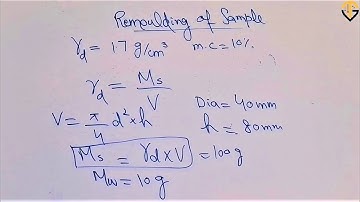 Remoulding of Sample
γd = 17 g/cm³ m.c = 10%
γd = Ms / V
Dia = 40mm
V = π/4 d² × h
h = 80mm
Ms = γd × V = 100g
Mw = 10g